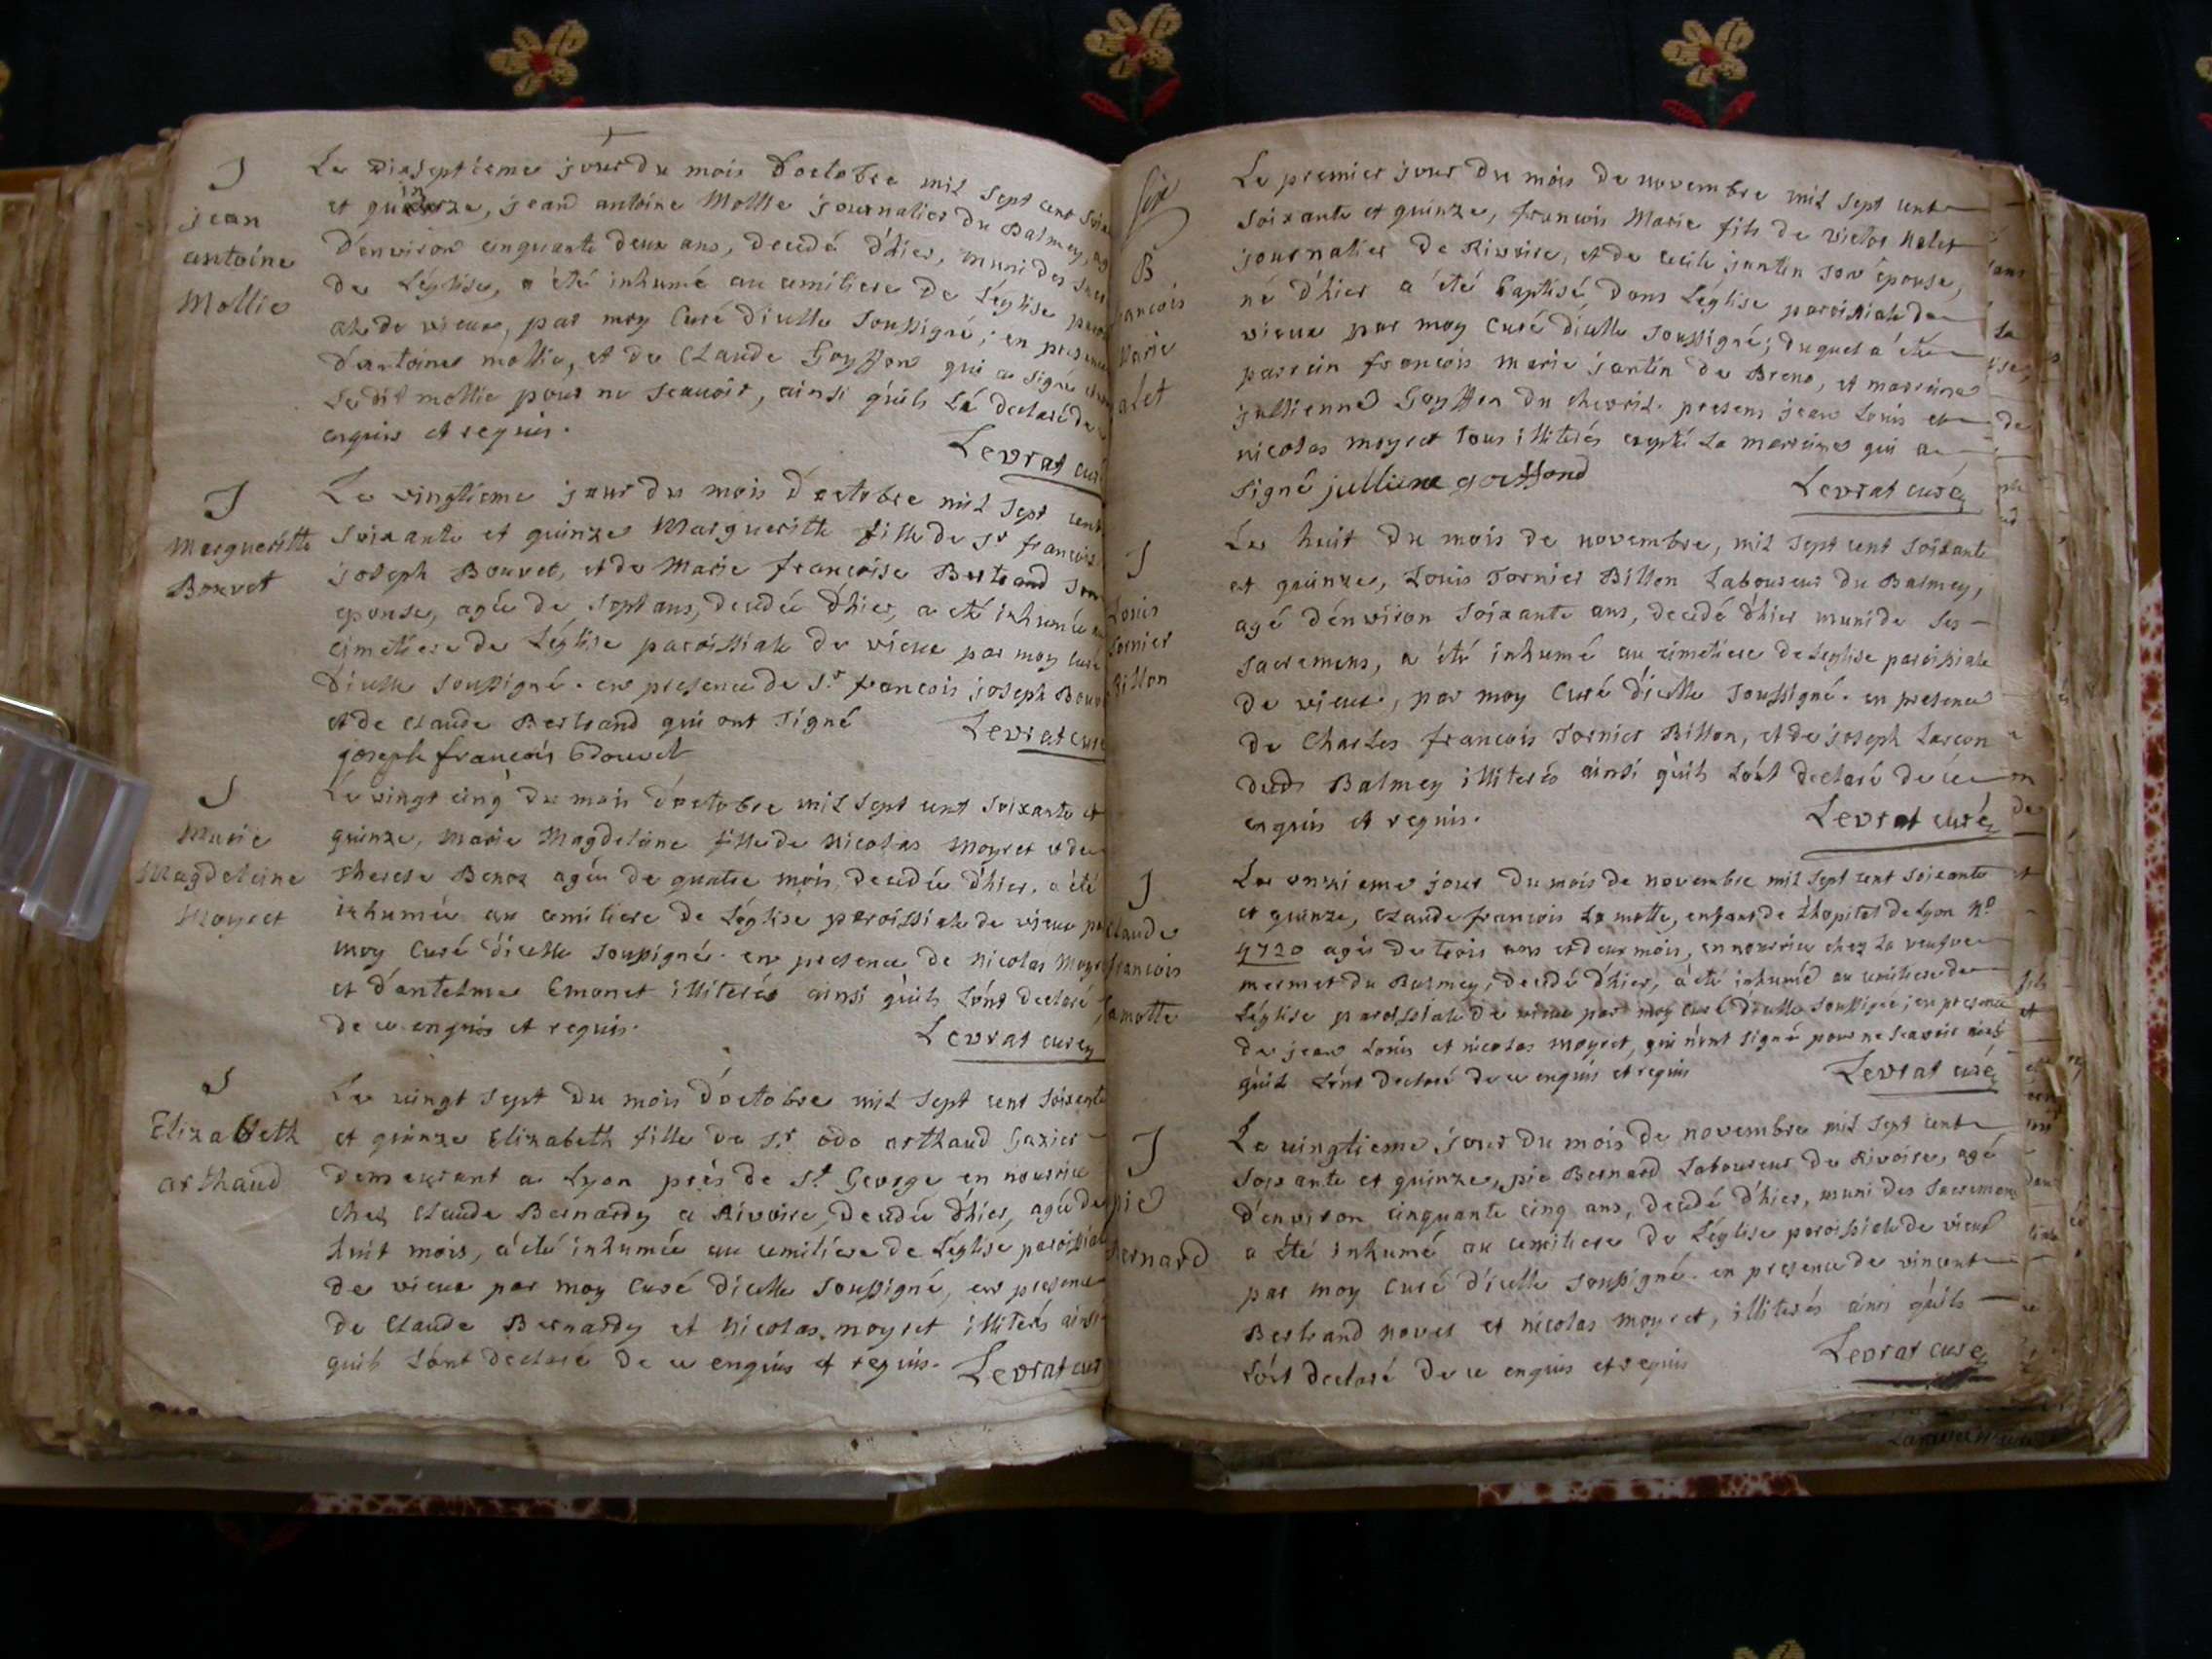 J
jean
antoine
Mollie
Le dixseptieme jour du mois d'octobre mil sept cent
et quinze, jean antoine Mollie journalier du Balmey,
d'environ cinquante deux ans, decedé d'hier, muni des
de L'église, a été inhumé au cemitiere de L'église
de vieux, par moy Curé d'icelle Soussigné; en presence
d'antoine mollie, et de Claude Goyffon qui a signé
Ledit mollie pour ne Scauoir, ainsi qu'ils L'a declaré de
enquis et requis.
Levrat curé
J
Margueritte
Bouvet
Le vingtieme jour du mois d'octobre mil sept cent
Soixante et quinze Margueritte fille de Sr francois
joseph Bouvet, et de Marie francoise Bertrand Son
epouse, agée de Sept ans, decedée d'hier, a eté inhumée
cimetiere de L'église paroissiale de vieux par moy curé
d'icelle Soussigné. en presence de Sr francois joseph
et de claude Bertrand qui ont Signé
Levrat curé
joseph francois Bouvet
J
Marie
Magdeleine
Moyret
Le vingt cinq du mois d'octobre mil sept cent soixante et
quinze, Marie Magdeleine fille de Nicolas Moyret et de
therese Benoz agée de quatre mois, decedée d'hier, a été
inhumée au cemitiere de L'église paroissiale de vieux
moy Curé d'icelle Soussigné. en presence de Nicolas
et d'antelme Emonet illiterés ainsi qu'ils L'ont declaré
de ce enquis et requis.
Levrat curé
J
Elizabeth
arthaud
Le vingt Sept du mois d'octobre mil Sept cent Soixante
et quinze Elizabeth fille de Sr odo arthaud Gazier
demeurant a Lyon près de St George en nourrice
chez Claude Bernardy a Rivoire, decedée d'hier, agée de
huit mois, a été inhumée au cemitiere de L'église paroissiale
de vieux par moy Curé d'icelle Soussigné, en presence
de Claude Bernardy et Nicolas moyret illiterés ainsi
quils L'ont declaré de ce enquis et requis.
Levrat curé
B
francois
Marie
Le premier jour du mois de novembre mil sept cent
Soixante et quinze, francois Marie fils de victor
journalier de Rivoire, et de cecile jantin son épouse,
né d'hier a été baptisé dans L'église paroissiale de
vieux par moy Curé d'icelle Soussigné; duquel a été
parrain francois Marie jantin de Breno, et marraine
jullienne Goyffon du chevril. presens jean Louis et
nicolas moyret tous illiterés exepté La marraine qui a
Signé julliene goiffond
Levrat curé
J
Louis
Tornier
Billon
Le huit du mois de novembre, mil sept cent soixante
et quinze, Louis Tornier Billon Laboureur du Balmey,
agé d'environ soixante ans, decedé d'hier muni de ses
Sacremens, a été inhumé au cimetiere de L'eglise paroissiale
de vieux, par moy Curé d'icelle Soussigné. en presence
de Charles francois Tornier Billon, et de joseph
dudt Balmey illiterés ainsi qu'ils L'ont declaré de ce
enquis et requis.
Levrat curé
J
Claude
francois
Lamotte
Le onzieme jour du mois de novembre mil sept cent soixante
et quinze, Claude francois La motte, enfant de L'hopital de Lyon No
4720 agé de trois ans et deux mois, en nourrice chez La veufve
mermet du Balmey, decedé d'hier, a été inhumé au cemitiere de
L'église paroissiale de vieux par moy Curé d'icelle Soussigné; en presence
de jean Louis et nicolas moyret, qui n'ont signé pour ne Scavoir
qu'ils L'ont declaré de ce enquis et requis
Levrat curé
J
pie
Bernard
Le vingtieme jour du mois de novembre mil sept cent
Soixante et quinze, pie Bernard Laboureur de Rivoire, agé
d'environ cinquante cinq ans, decedé d'hier, muni des Sacremens
a été inhumé au cemitiere de L'église paroissiale de vieux
par moy Curé d'icelle Soussigné. en presence de vincent
Bertrand novet et nicolas moyret, illiterés ainsi qu'ils
L'ont declaré de ce enquis et requis
Levrat curé